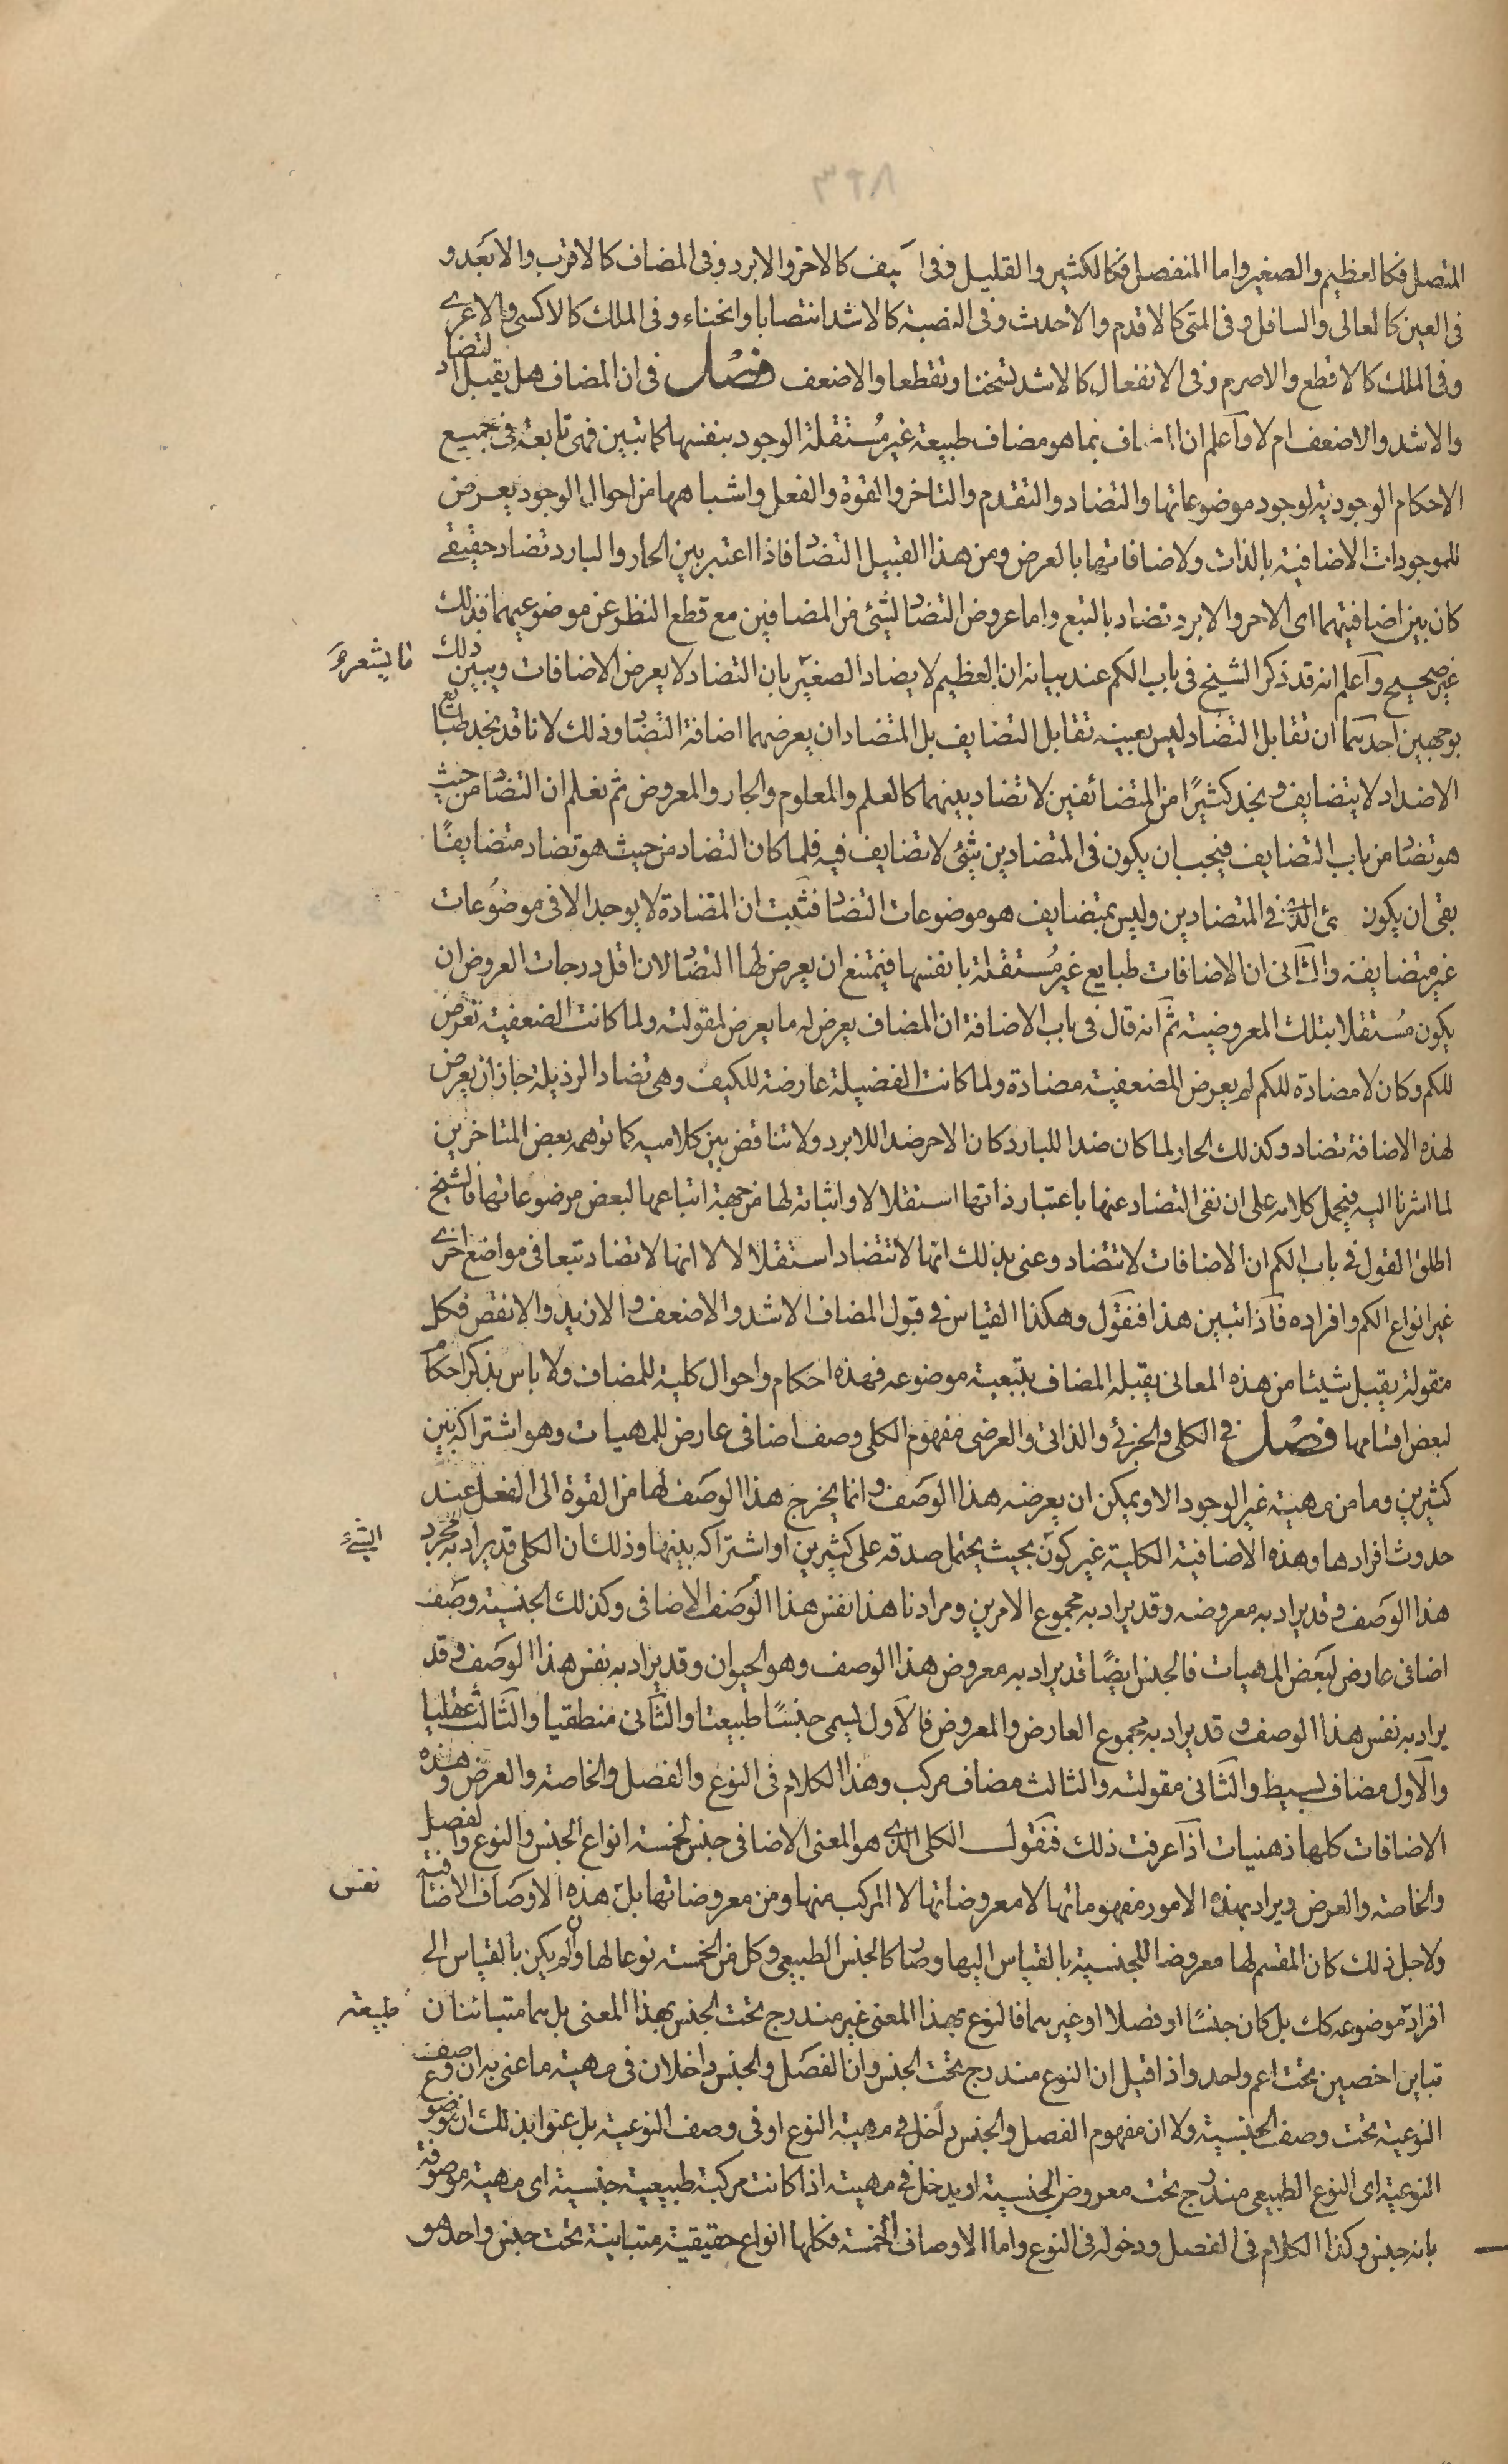 ٣٩٨
المتصل فكالعظيم والصغير واما المنفصل فكالكثير والقليل وفى ا يف كالاحر والابرد وفى المضاف كالاقرب والابعد و
فى العين كالعالى والسافل وفى المتى كالاقدم والاحدث وفى النصبة كالاشد انتصابا وانحناء وفى الملك كالاكسى والاعرى
وفى الملك كالاقطع والاصرم وفى الانفعال كالاشد تسخنا وتقطعا والاضعف فصل فى ان المضاف هل يقبل التضاد
والاشد والاضعف ام لا واعلم ان ا اف بما هو مضاف طبيعة غير مستقلة الوجود بنفسها كما تبين فهى تابعة فى جميع
الاحكام الوجودية لوجود موضوعاتها والتضاد والتقدم والتاخر والقوة والفعل واشباهها من احوال الوجود يعرض
للموجودات الاضافية بالذات ولاضافاتها بالعرض ومن هذا القبيل التضاد فاذا اعتبر بين الحار والبارد تضاد حقيقى
كان بين اضافيتهما اى الاحر والابرد تضاد بالتبع واما عروض التضاد لشئ من المضافين مع قطع النظر عن موضوعيهما فذلك
غير صحيح واعلم انه قد ذكر الشيخ فى باب الكم عند بيانه ان العظيم لا يضاد الصغير بان التضاد لا يعرض الاضافات ويبين ذلك
ما يشعر
بوجهين احدهما ان تقابل التضاد ليس بعينه تقابل التضايف بل المتضادان يعرضهما اضافة التضاد وذلك لانا قد نجد طبايع
الاضداد لا يتضايف ونجد كثيرًا من المتضائفين لا تضاد بينهما كالعلم والمعلوم والجار والمعروض ثم نعلم ان التضاد من حيث
هو تضاد من باب التضايف فيجب ان يكون فى المتضادين شئ لا تضايف فيه فلما كان التضاد من حيث هو تضاد متضايفًا
بقى ان يكون ئ الذى فى المتضادين وليس بمتضايف هو موضوعات التضاد فثبت ان المتضادة لا يوجد الا فى موضوعات
غير متضايفة والثانى ان الاضافات طبايع غير مستقلة بانفسها فيمتنع ان يعرض لها التضاد لان اقل درجات العروض ان
يكون مستقلا بتلك المعروضية ثم انه قال فى باب الاضافة ان المضاف يعرض له ما يعرض لمقولته ولما كانت الضعفية تعرض
للكم وكان لا مضادة للكم لم يعرض للضعفية مضادة ولما كانت الفضيلة عارضة للكيف وهى تضاد الرذيلة جاز ان يعرض
لهذه الاضافة تضاد وكذلك الحار لما كان ضدا للبارد كان الاحر ضدا للابرد ولا تناقض بين كلاميه كما توهمه بعض المتاخرين
لما اشرنا اليه فيحمل كلامه على ان نفى التضاد عنها باعتبار ذاتها استقلالا واثباته لها من جهة اتباعها لبعض موضوعاتها فالشيخ
اطلق القول فى باب الكم ان الاضافات لا تتضاد وعنى بذلك انها لا تتضاد استقلالا لا انها لا تضاد تبعا فى مواضع اخرى
غير انواع الكم وافراده فاذا تبين هذا فنقول وهكذا القياس فى قبول المضاف الاشد والاضعف والازيد والانقص فكل
مقولة يقبل شيئا من هذه المعانى يقبله المضاف بتبعية موضوعه فهذه احكام واحوال كلية للمضاف ولا باس بذكر احكام
لبعض اقسامها فصل فى الكلى والجزئى والذاتى والعرضى مفهوم الكلى وصف اضافى عارض للمهيات وهو اشتراكه بين
كثيرين وما من مهية غير الوجود الا ويمكن ان يعرضه هذا الوصف وانما يخرج هذا الوصف لها من القوة الى الفعل عند
حدوث افرادها وهذه الاضافية الكلية غير كون بحيث يحتمل صدقه على كثيرين او اشتراكه بينها وذلك ان الكلى قد يراد به مجرد
الشئ
هذا الوصف وقد يراد به معروضه وقد يراد به مجموع الامرين ومرادنا هذا نفس هذا الوصف الاضافى وكذلك الجنسية وصف
اضافى عارض لبعض المهيات فالجنس ايضًا قد يراد به معروض هذا الوصف وهو الحيوان وقد يراد به نفس هذا الوصف وقد
يراد به نفس هذا الوصف وقد يراد به مجموع العارض والمعروض فالاول يسمى جنسًا طبيعيا والثانى منطقيا والثالث عقليا
والاول مضاف بسيط والثانى مقولته والثالث مضاف مركب وهذا الكلام فى النوع والفصل والخاصة والعرض وهذه
الاضافات كلها ذهنيات اذا عرفت ذلك فنقول الكلى الذى هو المعنى الاضافى جنس لخمسة انواع الجنس والنوع والفصل
والخاصة والعرض ويراد بهذه الامور مفهوماتها لا معروضاتها لا المركب منها ومن معروضاتها بل هذه الاوصاف الاضافية
نفس
ولاجل ذلك كان المقسم لها معروضا للجنسية بالقياس اليها وصار كالجنس الطبيعى وكل من الخمسة نوعا لها وان لم يكن بالقياس الى
افراد موضوعه كك بل كان جنسًا او فصلا او غيرهما فالنوع بهذا المعنى غير مندرج تحت الجنس بهذا المعنى بل هما متبائنان
طبيعة
تباين اخصين تحت اعم واحد واذا قيل ان النوع مندرج تحت الجنس وان الفصل والجنس داخلان فى مهية ما عنى به ان وصف
النوعية تحت وصف الجنسية ولا ان مفهوم الفصل والجنس داخل فى مهية النوع او فى وصف النوعية بل عنوا بذلك ان موضوع
النوعية اى النوع الطبيعى مندرج تحت معروض الجنسية او يدخل فى مهية اذا كانت مركبة طبيعية جنسية اى مهية موصوفة
بانه جنس وكذا الكلام فى الفصل ودخوله فى النوع واما الاوصاف الخمسة فكلها انواع حقيقية متباينة تحت جنس واحد هو